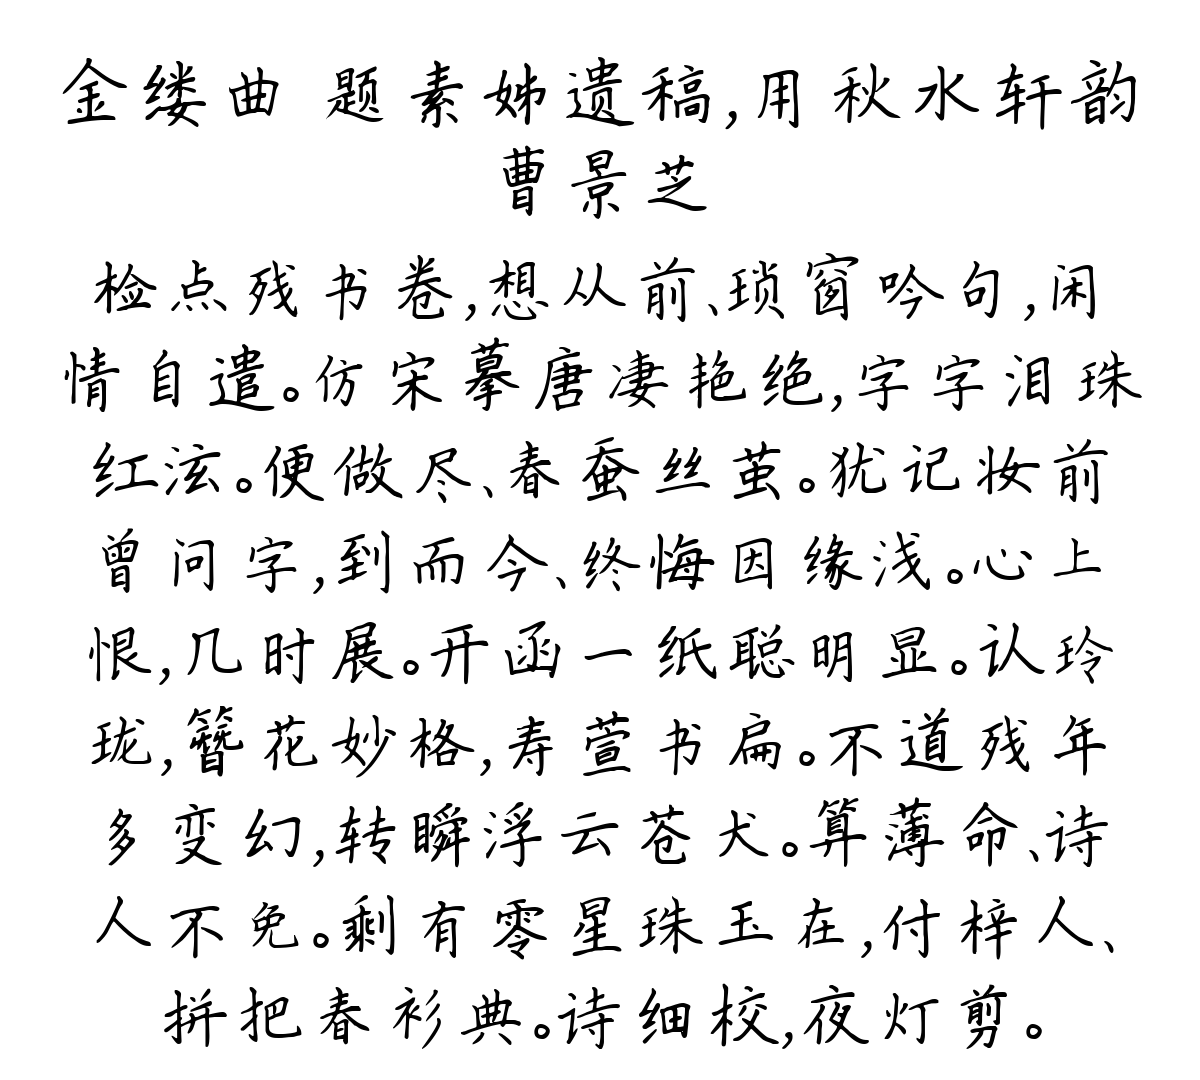 金缕曲 题素姊遗稿,用秋水轩韵
曹景芝
检点残书卷,想从前、琐窗吟句,闲
情自遣。仿宋摹唐凄艳绝,字字泪珠
红泫。便做尽、春蚕丝茧。犹记妆前
曾问字,到而今、终悔因缘浅。心上
恨,几时展。开函一纸聪明显。认玲
珑,簪花妙格,寿萱书扁。不道残年
多变幻,转瞬浮云苍犬。算薄命、诗
人不免。剩有零星珠玉在,付梓人、
拼把春衫典。诗细校,夜灯剪。